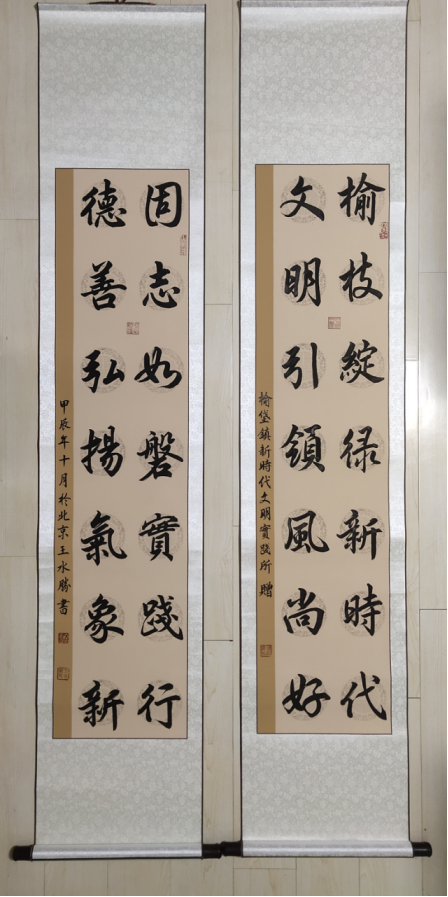 榆枝綻绿新時代
文明引領風尚好
榆垡鎮新時代文明實踐所 贈
固志如磐實踐行
德善弘揚氣象新
甲辰年十月於北京王水勝書